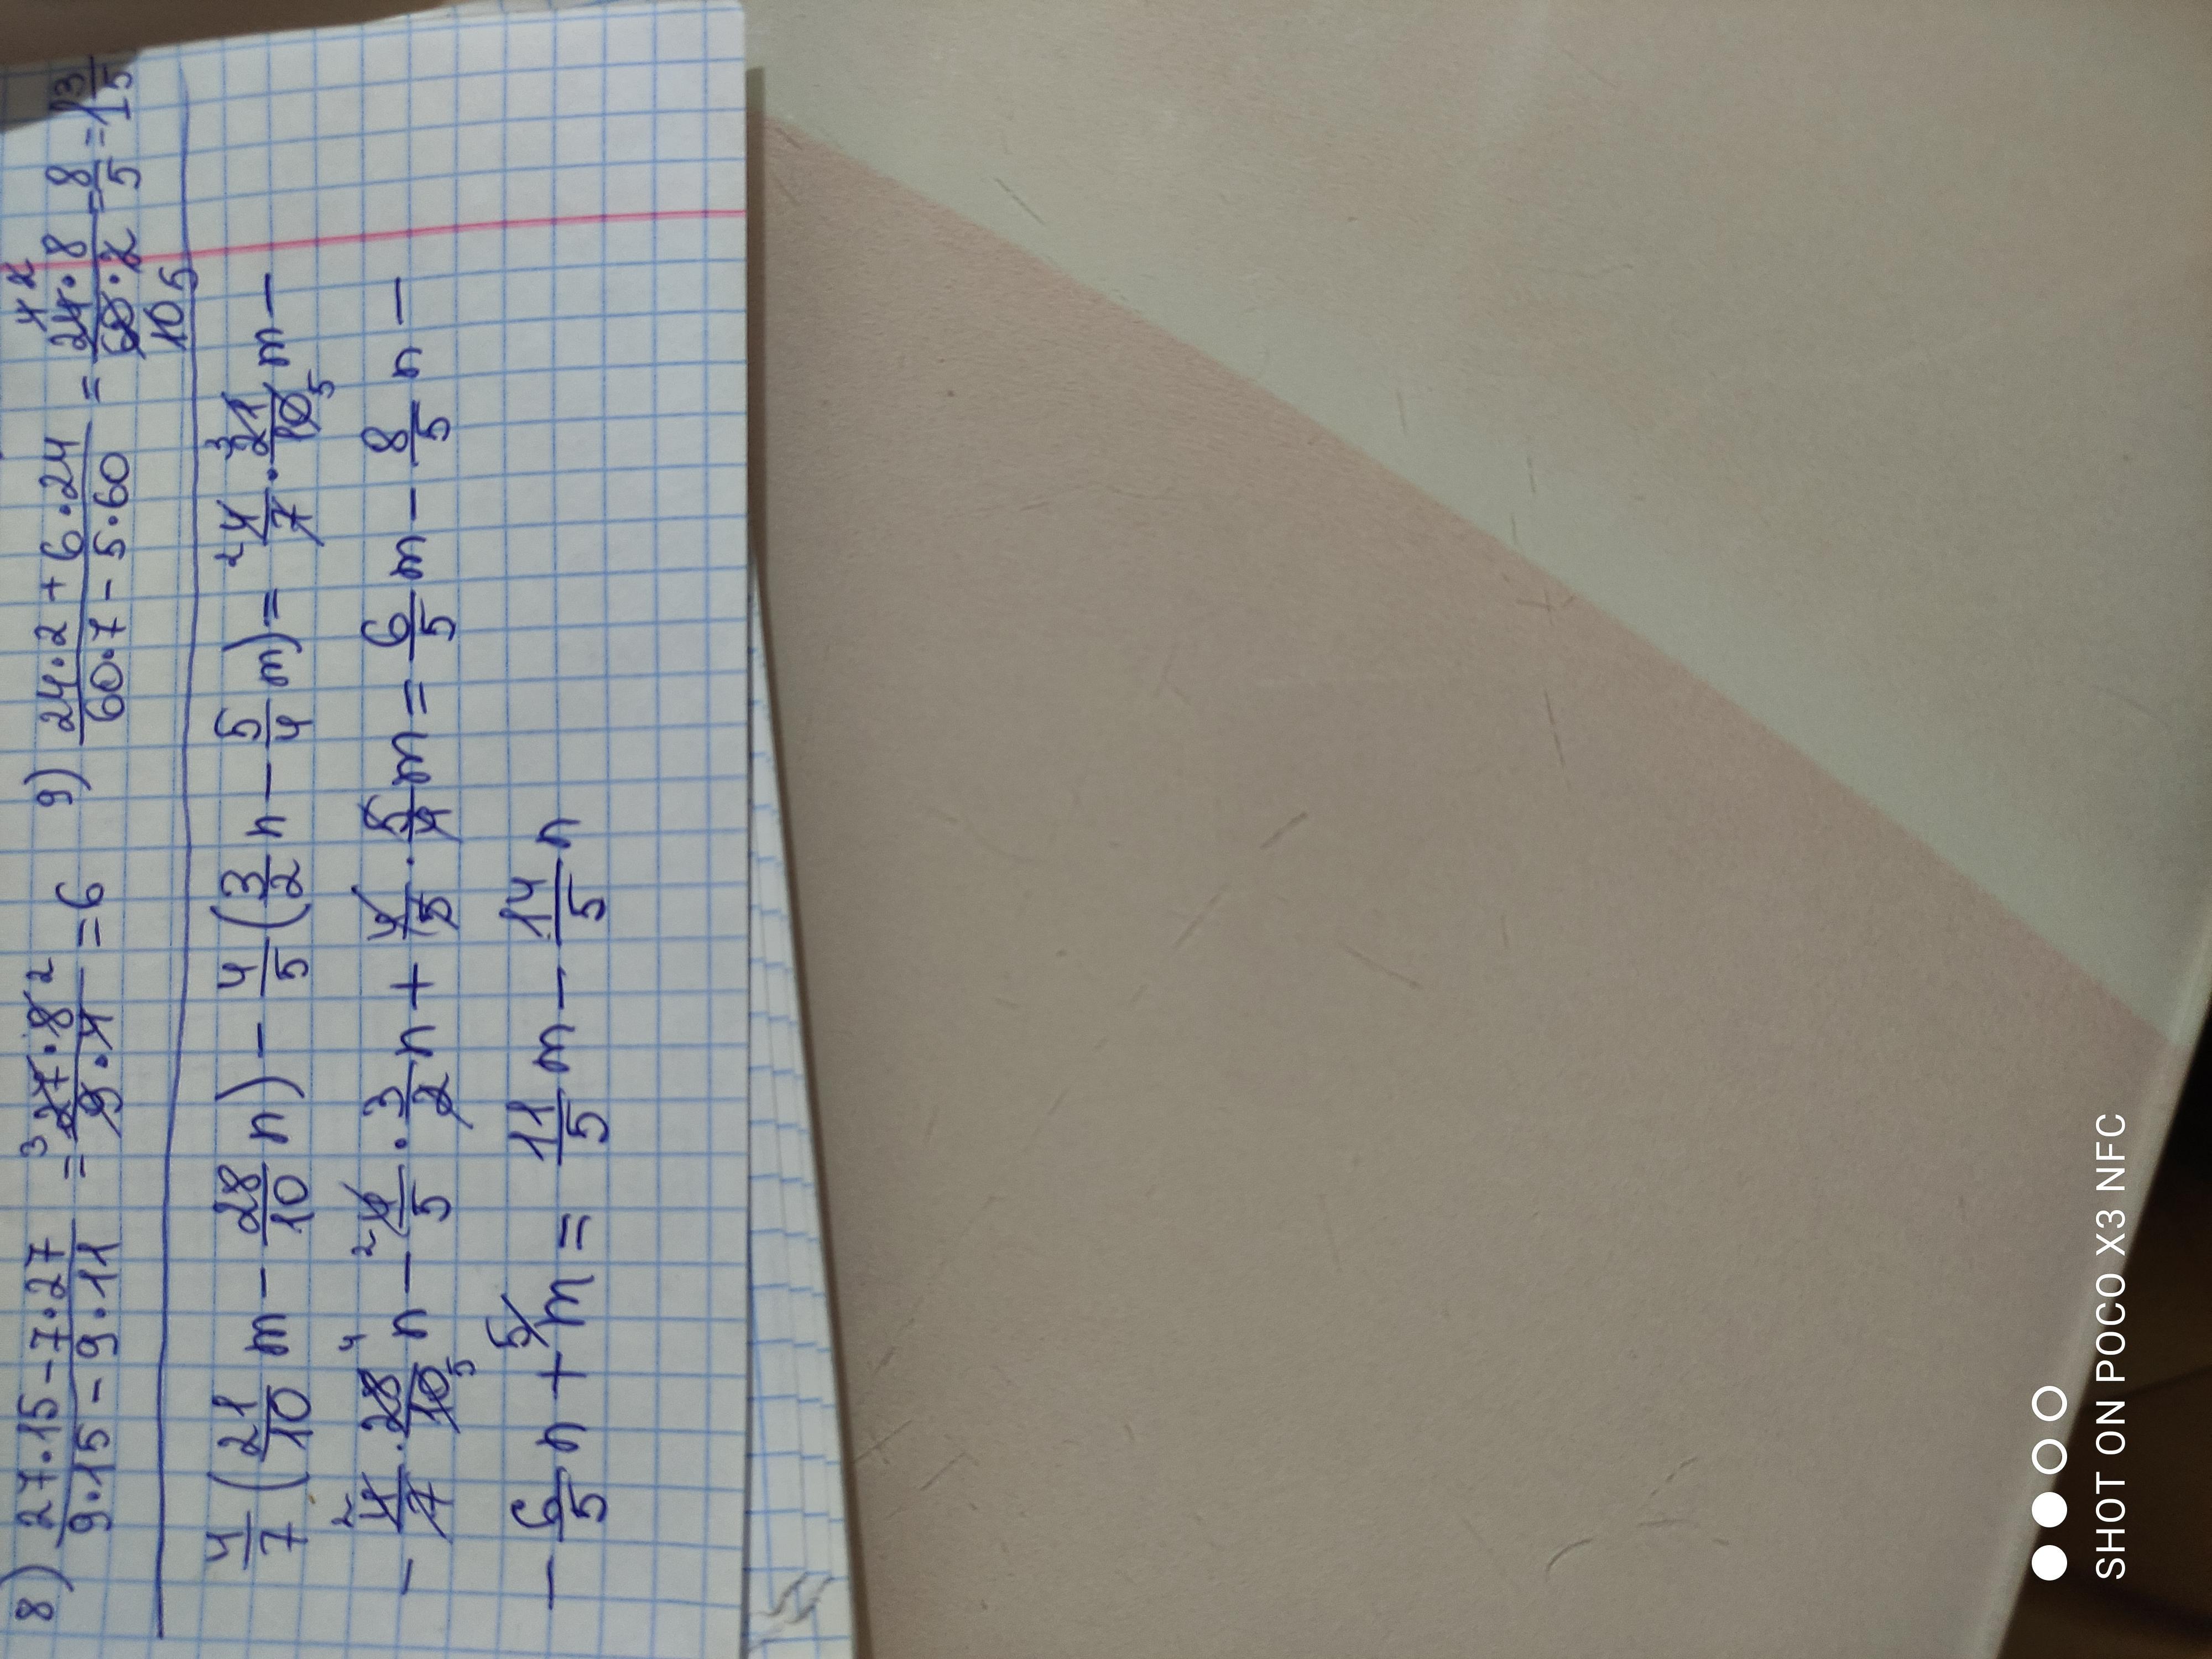 8) (27·15 − 7·27)/(9·15 − 9·11) = ³27·8²/9·4 = 6 9) (24·2 + 6·24)/(60·7 − 5·60) = 4 2 24·8/60·2 10 5 = 8/5 = 1 3/5
4/7 (21/10 m − 28/10 n) − 4/5 (3/2 n − 5/4 m) = ²4/7 · ³21/10₅ m −
− ²4/7 · 28⁴/10₅ n − ²4/5 · 3/2 n + 4/5 · 5/4 m = 6/5 m − 8/5 n −
− 6/5 n + ⁵⁄m = 11/5 m − 14/5 n
SHOT ON POCO X3 NFC